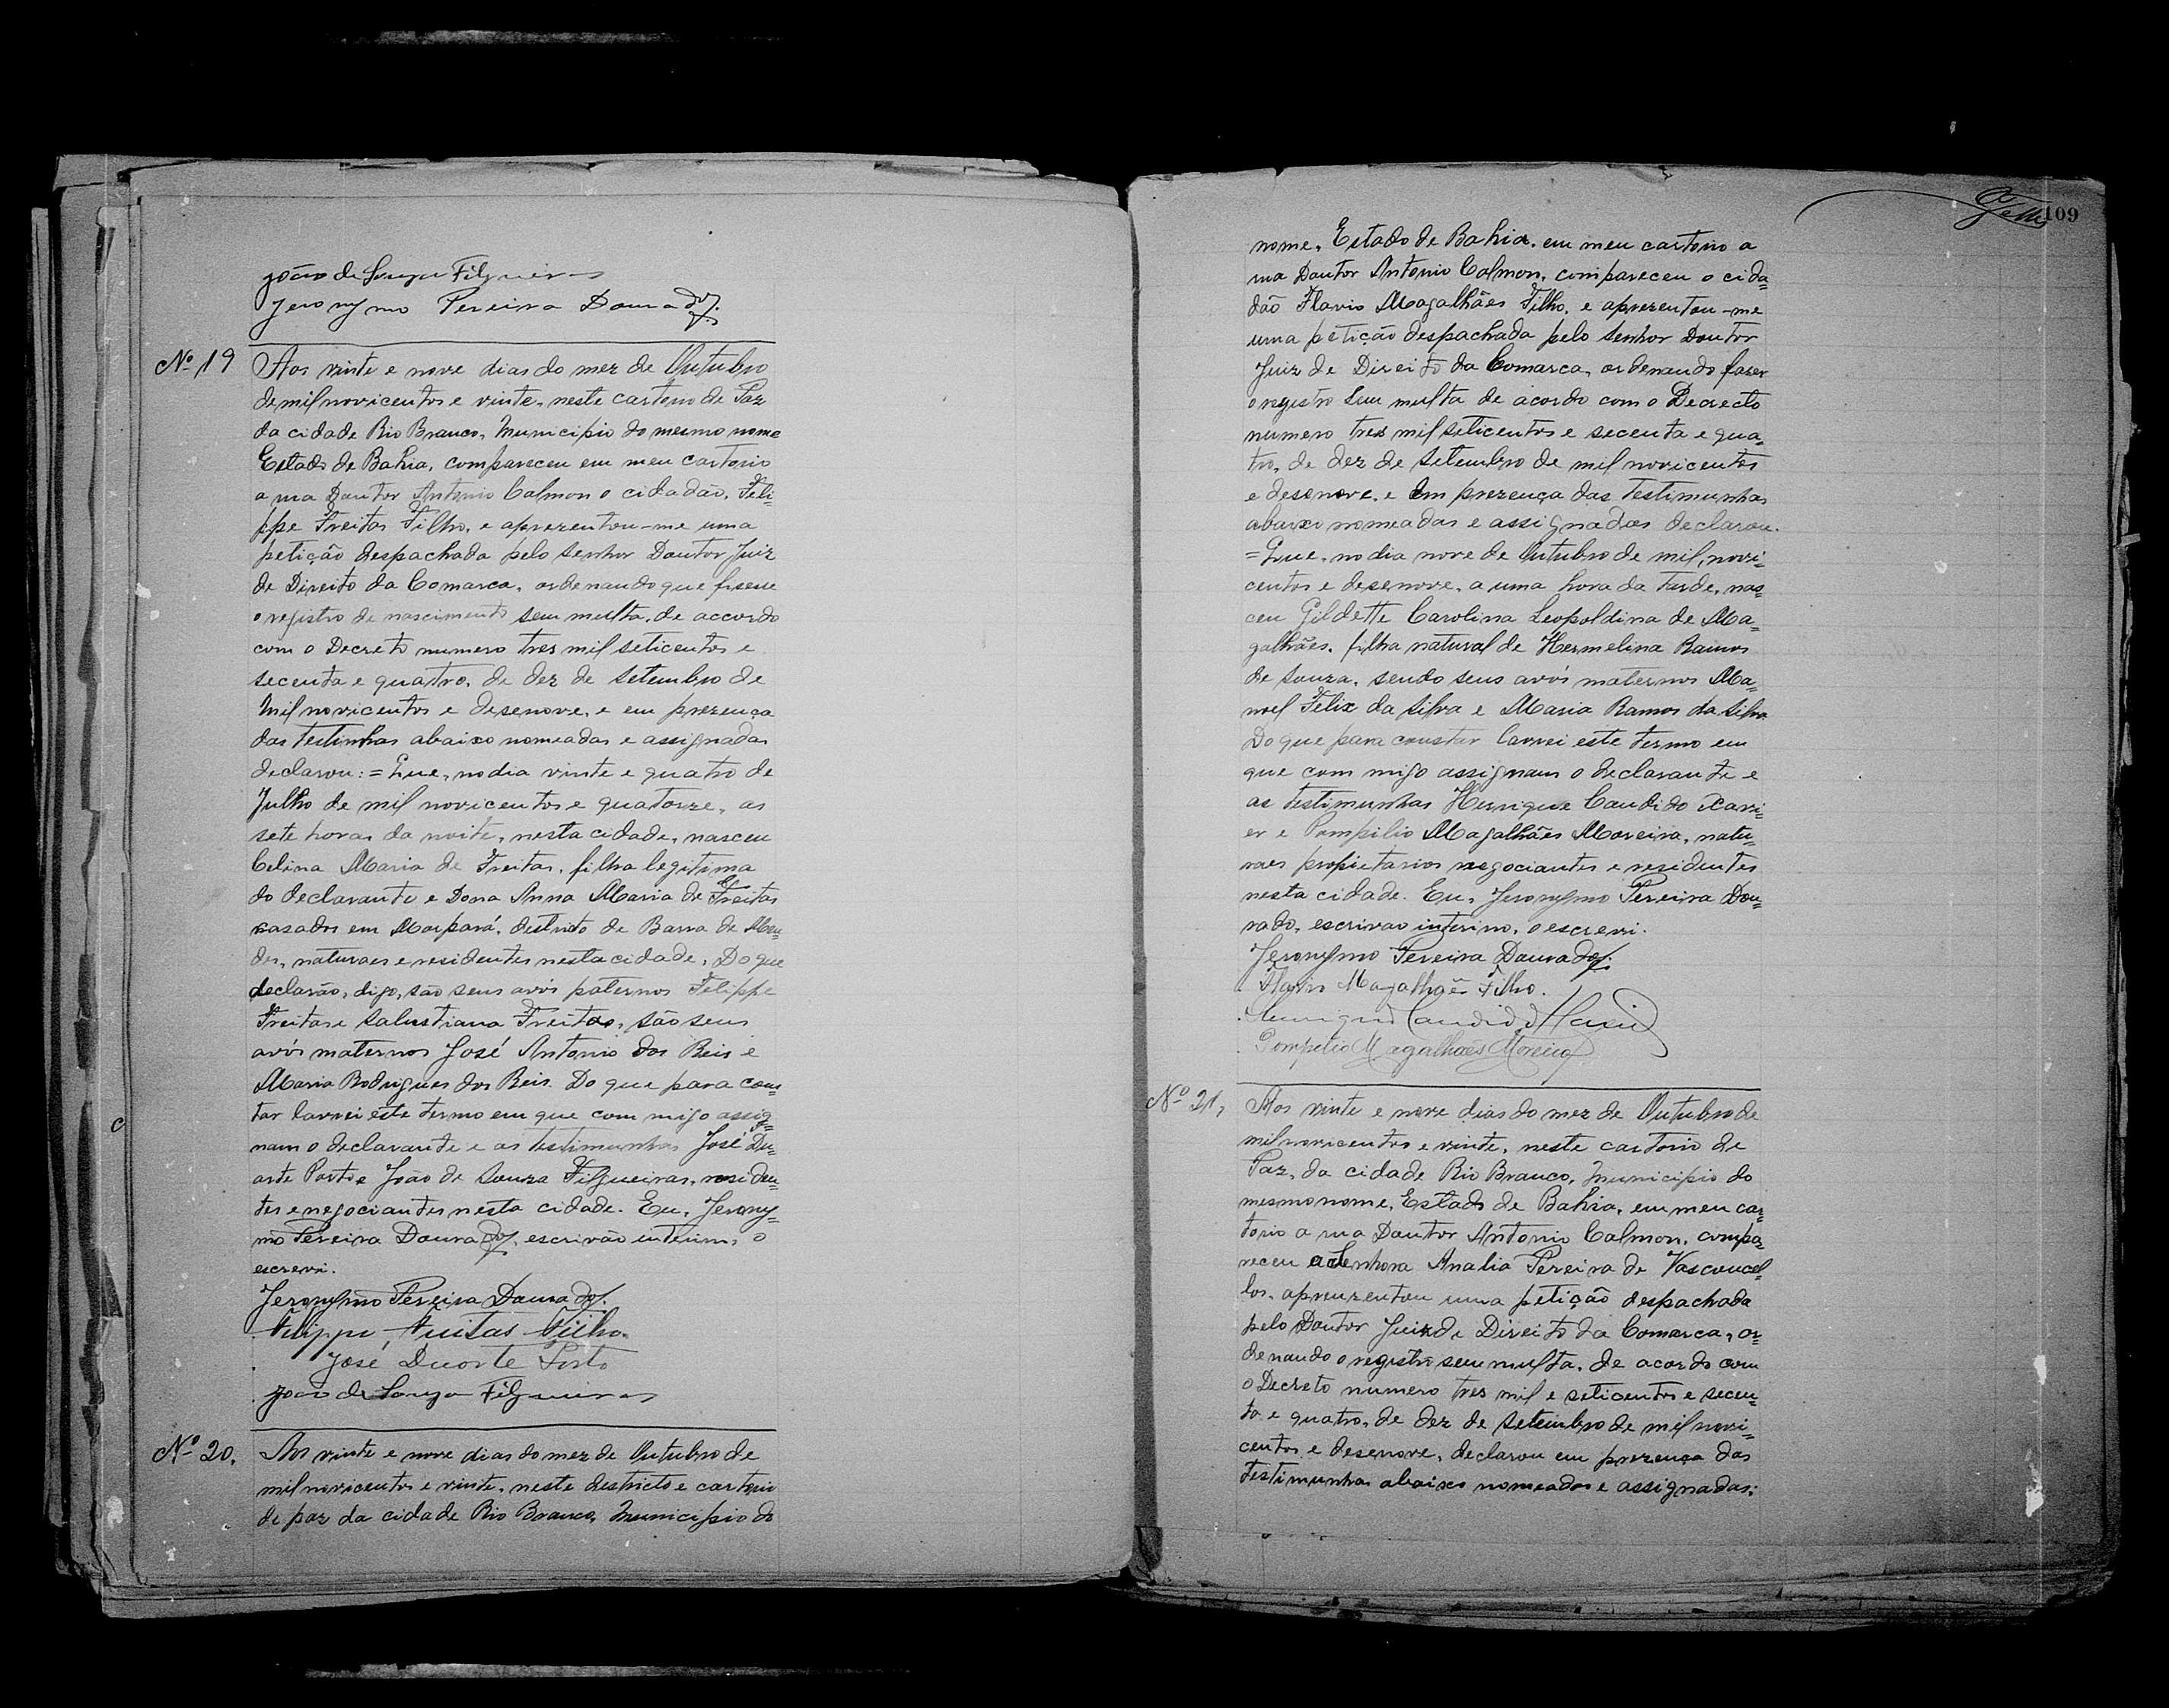 João de Souza Filgueiras
Jeronymo Pereira Dourado
Nº 19 Aos vinte e nove dias do mez de Outubro
de mil novicentos e vinte, neste cartorio de Paz
da cidade Rio Branco, Municipio do mesmo nome
Estado de Bahia, compareceu em meu cartorio
a rua Doutor Antonio Calmon o cidadão, Feli=
ppe Freitas Filho, e aprezentou-me uma
petição despachada pelo Senhor Doutor Juiz
de Direito da Comarca, ordenando que fisesse
o registro de nascimento sem multa, de accordo
com o Decreto numero tres mil seticentos e
secenta e quatro, de dez de Setembro de
Mil novicentos e desenove, e em prezença
das testinhas abaixo nomeadas e assignadas
declarou: = Que, no dia vinte e quatro de
Julho de mil novicentos e quatorze, as
sete horas da noite, nesta cidade, nasceu
Celina Maria de Freitas, filha legitima
do declarante e Dona Anna Maria de Freitas
casados em Morpará, destrito de Barra de Men=
des, naturaes e residentes nesta cidade, Do que
declarão, digo, são seus avós paternos Felippe
Freitas e Salustiana Freitas, são seus
avós maternos José Antonio dos Reis e
Maria Rodrigues dos Reis. Do que para cons=
tar lavrei este termo em que com migo assig=
nam o declarante e as testimunhas José Du=
arte Porto e João de Souza Filgueiras, residen=
tes e negociantes nesta cidade. Eu, Jerony=
mo Pereira Dourado, escrivão interim, o
escrevi.
Jeronymo Pereira Dourado
Felippe Freitas Filho.
José Duarte Porto
João de Souza Filgueiras
Nº 20. Aos vinte e nove dias do mez de Outubro de
mil novicentos e vinte, neste destricto e cartorio
de paz da cidade Rio Branco, Municipio do
109
nome, Estado de Bahia, em meu cartorio a
rua Doutor Antonio Calmon, compareceu o cida=
dão Flavio Magalhães Filho, e aprezentou-me
uma petição despachada pelo Senhor Doutor
Juiz de Direito da Comarca, ordenando faser
o registro sem multa de acordo com o Decrecto
numero tres mil seticentos e secenta e qua=
tro, de dez de Setembro de mil novicentos
e desenove, e em prezença das testimunhas
abaixo nomeadas e assignadas declarou.
= Que, no dia nove de Outubro de mil, novi=
centos e desenove, a uma hora da tarde, nas=
ceu Gildette Carolina Leopoldina de Ma=
galhães, filha natural de Hermelina Ramos
de Souza, sendo seus avós maternos Ma=
noel Felix da Silva e Maria Ramos da Silva
Do que para constar lavrei este termo em
que com migo assignam o declarante e
as testimunhas Henrique Candido Xavi=
er e Pompilio Magalhães Moreira, natu=
raes propietarios negociantes e residentes
nesta cidade. Eu, Jeronymo Pereira Dou=
rado, escrivao interino, o escrevi.
Jeronymo Pereira Dourado
Flavio Magalhães Filho.
Henrique Candido Xavier
Pompilio Magalhães Moreira
Nº 21, Aos vinte e nove dias do mez de Outubro de
mil novicentos e vinte, neste cartorio de
Paz, da cidade Rio Branco, Municipio do
mesmo nome, Estado de Bahia, em meu car=
torio a rua Doutor Antonio Calmon, compa=
receu a Senhora Analia Pereira de Vasconcel=
los, aprezentou uma petição despachada
pelo Doutor Juiz de Direito da Comarca, or=
denando o registro sem multa, de acordo com
o Decreto numero tres mil e seticentos e secen=
ta e quatro, de dez de Setembro de mil novi=
centos e desenove, declarou em prezença das
testimunhas abaixo nomeadas e assignadas: